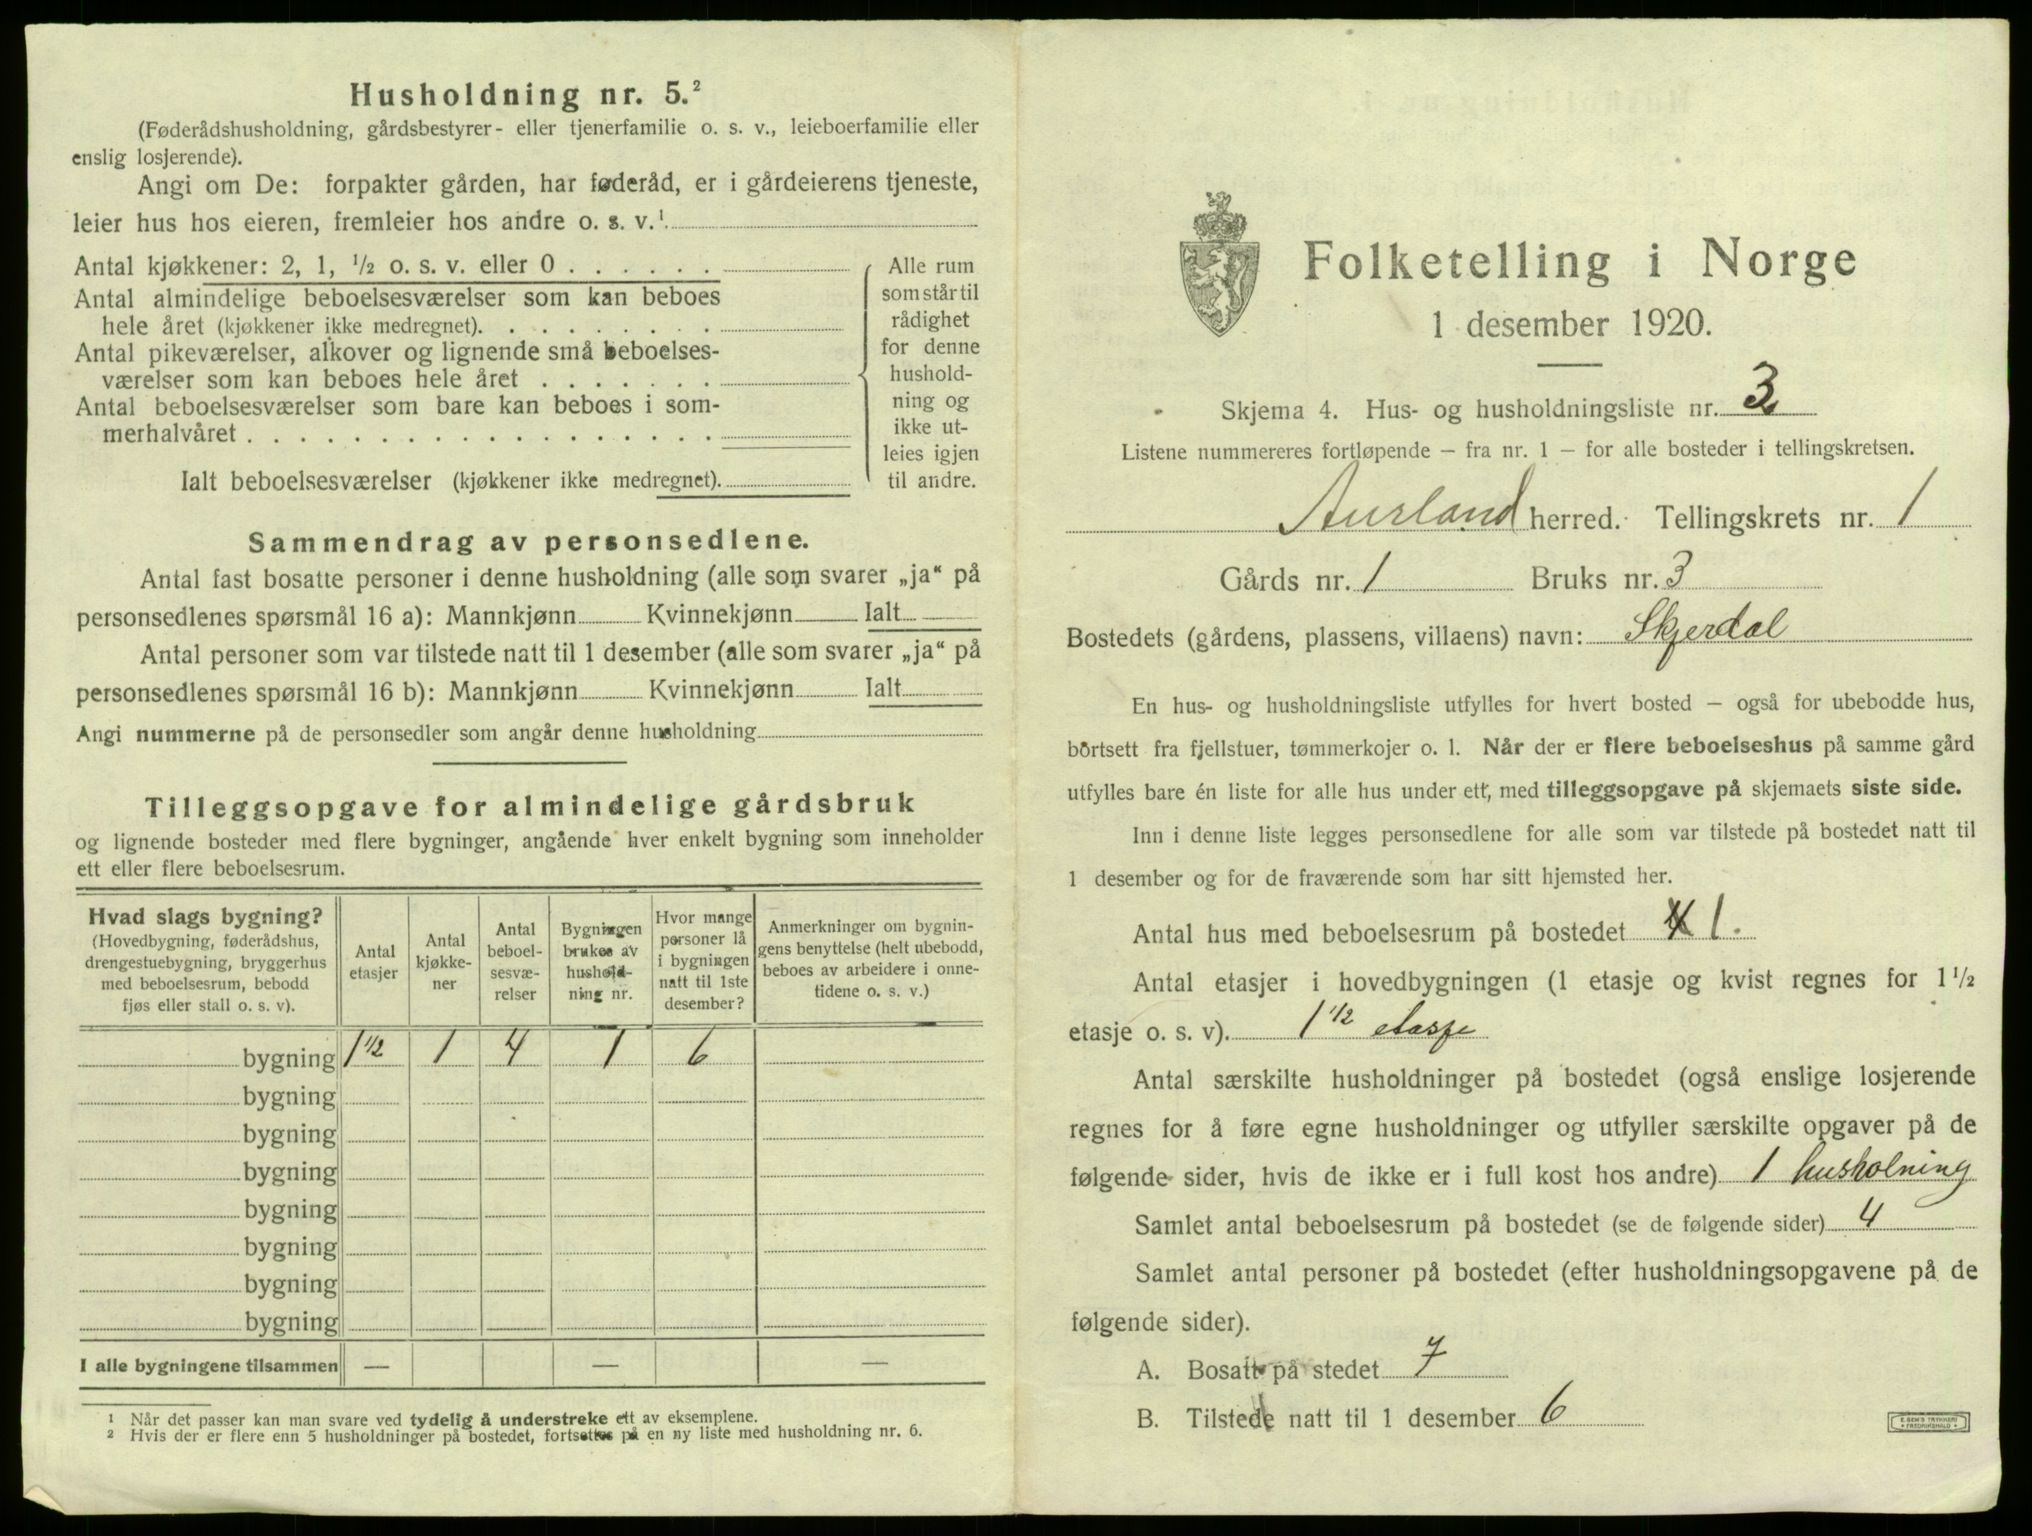 Husholdning nr. 5.²
(Føderådshusholdning, gårdsbestyrer- eller tjenerfamilie o. s. v., leieboerfamilie eller
enslig losjerende).
Angi om De: forpakter gården, har føderåd, er i gårdeierens tjeneste,
leier hus hos eieren, fremleier hos andre o. s. v.¹
Antal kjøkkener: 2, 1, ½ o. s. v. eller 0 . . . . . .
Antal almindelige beboelsesværelser som kan beboes
hele året (kjøkkener ikke medregnet). . . . . . . . .
Antal pikeværelser, alkover og lignende små beboelses-
værelser som kan beboes hele året . . . . . . .
Antal beboelsesværelser som bare kan beboes i som-
merhalvåret . . . . . . . . . . . . . . . . . .
Ialt beboelsesværelser (kjøkkener ikke medregnet).
Alle rum
som står til
rådighet
for denne
hushold-
ning og
ikke ut-
leies igjen
til andre.
Sammendrag av personsedlene.
Antal fast bosatte personer i denne husholdning (alle som svarer „ja“ på
personsedlenes spørsmål 16 a): Mannkjønn Kvinnekjønn Ialt
Antal personer som var tilstede natt til 1 desember (alle som svarer „ja“ på
personsedlenes spørsmål 16 b): Mannkjønn Kvinnekjønn Ialt
Angi nummerne på de personsedler som angår denne husholdning
Tilleggsopgave for almindelige gårdsbruk
og lignende bosteder med flere bygninger, angående hver enkelt bygning som inneholder
ett eller flere beboelsesrum.
Hvad slags bygning?
(Hovedbygning, føderådshus,
drengestuebygning, bryggerhus
med beboelsesrum, bebodd
fjøs eller stall o. s. v).
Antal
etasjer
Antal
kjøkke-
ner
Antal
beboel-
sesvæ-
relser
Bygningen
brukes av
hushold-
ning nr.
Hvor mange
personer lå
i bygningen
natt til 1ste
desember?
Anmerkninger om bygnin-
gens benyttelse (helt ubebodd,
beboes av arbeidere i onne-
tidene o. s. v.)
bygning 1 ½ 1 4 1 6
bygning
bygning
bygning
bygning
bygning
bygning
bygning
I alle bygningene tilsammen — — —
1 Når det passer kan man svare ved tydelig å understreke ett av eksemplene.
2 Hvis der er flere enn 5 husholdninger på bostedet, fortsettes på en ny liste med husholdning nr. 6.
Folketelling i Norge
1 desember 1920.
Skjema 4. Hus- og husholdningsliste nr. 3
Listene nummereres fortløpende – fra nr. 1 – for alle bosteder i tellingskretsen.
Aurland herred. Tellingskrets nr. 1
Gårds nr. 1 Bruks nr. 3
Bostedets (gårdens, plassens, villaens) navn: Skjerdal
En hus- og husholdningsliste utfylles for hvert bosted – også for ubebodde hus,
bortsett fra fjellstuer, tømmerkojer o. l. Når der er flere beboelseshus på samme gård
utfylles bare én liste for alle hus under ett, med tilleggsopgave på skjemaets siste side.
Inn i denne liste legges personsedlene for alle som var tilstede på bostedet natt til
1 desember og for de fraværende som har sitt hjemsted her.
Antal hus med beboelsesrum på bostedet 1.
Antal etasjer i hovedbygningen (1 etasje og kvist regnes for 1½
etasje o. s. v). 1 ½ etasje
Antal særskilte husholdninger på bostedet (også enslige losjerende
regnes for å føre egne husholdninger og utfyller særskilte opgaver på de
følgende sider, hvis de ikke er i full kost hos andre) 1 husholning
Samlet antal beboelsesrum på bostedet (se de følgende sider) 4
Samlet antal personer på bostedet (efter husholdningsopgavene på de
følgende sider).
A. Bosatt på stedet 7
B. Tilstede natt til 1 desember 6
E. SEM'S TRYKKERI
• FREDRIKSHALD •